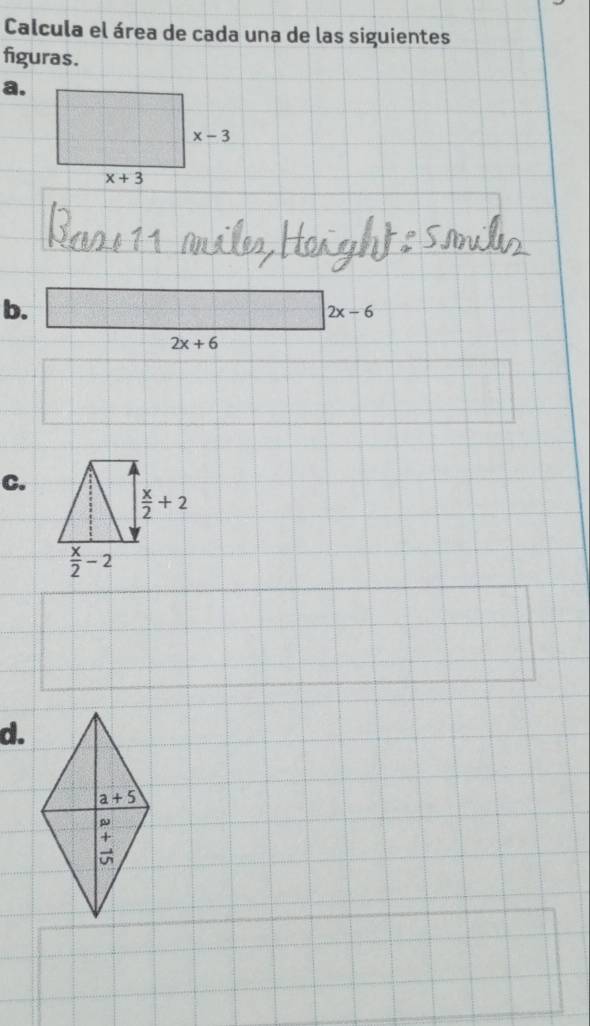 Calcula el área de cada una de las siguientes
figuras.
a.
x - 3
x + 3
Base 11 miles, Height: 5 miles
b.
2x - 6
2x + 6
c.
x/2 + 2
x/2 - 2
d.
a + 5
a + 15